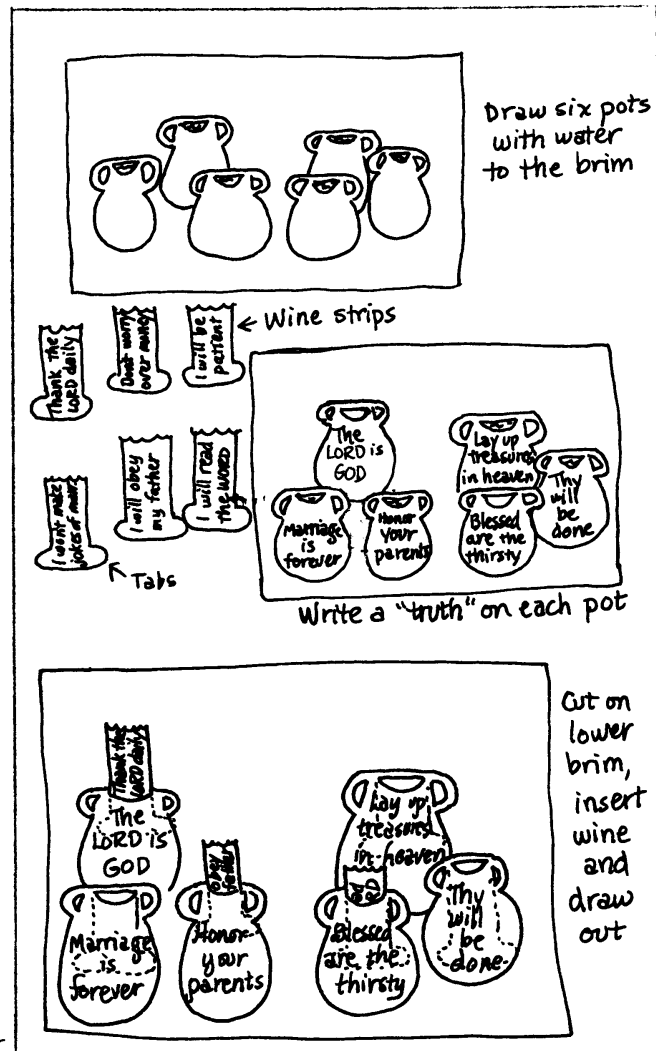 Draw six pots
with water
to the brim
Thank the
LORD daily
Don't worry
over money
I will be
patient
Wine strips
I won't make
jokes of marr.
I will obey
my father
I will read
the WORD
Tabs
The
LORD is
GOD
Marriage
is
forever
Honor
your
parents
Lay up
treasures
in heaven
Blessed
are the
thirsty
Thy
will
be
done
Write a "truth" on each pot
Thank the
LORD daily
The
LORD is
GOD
Marriage
is
forever
obey
father
Honor
your
parents
Lay up
treasures
in heaven
Blessed
are the
thirsty
Thy
will
be
done
Cut on
lower
brim,
insert
wine
and
draw
out